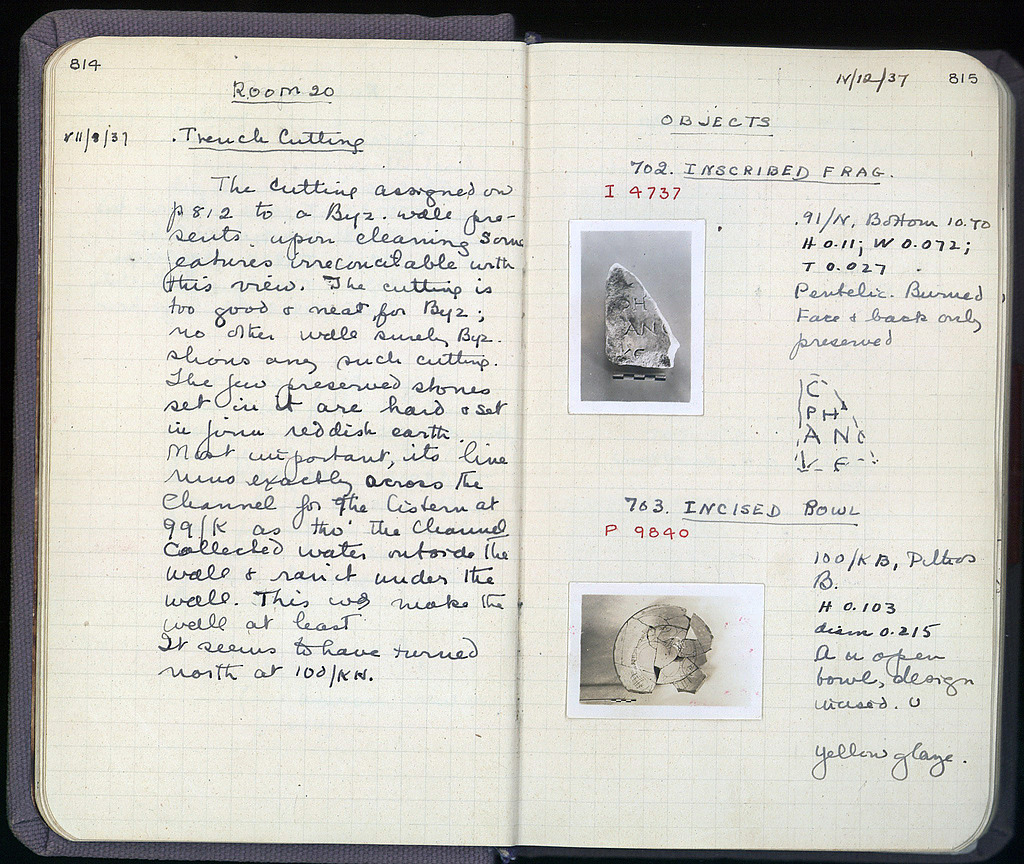 814
Room 20
VII/8/37
Trench Cutting
The cutting assigned on
p 812 to a Byz. wall pre-
sents upon cleaning some
features irreconcilable with
this view. The cutting is
too good & neat for Byz;
no other wall surely Byz.
shows any such cutting.
The few preserved stones
set in it are hard & set
in firm reddish earth.
Most important, its line
runs exactly across the
Channel for the Cistern at
99/K as tho' the Channel
Collected water outside the
wall & ran it under the
wall. This wd make the
wall at least
It seems to have turned
north at 100/KN.
IV/12/37
815
OBJECTS
702. INSCRIBED FRAG.
I 4737
91/N, Bottom 10.70
H 0.11; W 0.072;
T 0.027
Pentelic. Burned
Face & back only
preserved
C
PH
ANC
703. INCISED BOWL
P 9840
100/KB, Pithos
B.
H 0.103
diam 0.215
open
bowl, design
incised.
yellow glaze.